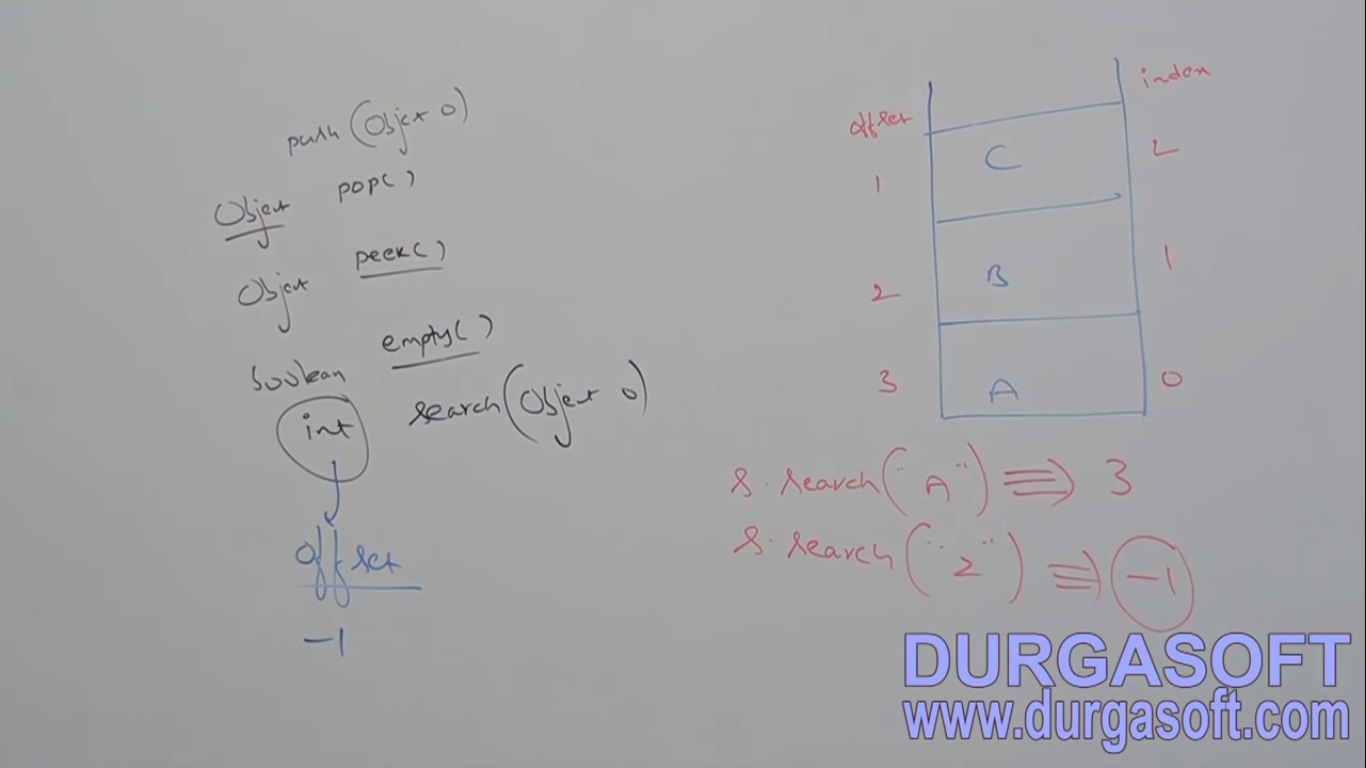 push(Object o)
Object pop()
Object peek()
boolean empty()
int search(Object o)
offset
-1
offset index
C
1 2
B
2 1
A
3 0
s.search("A") ⟹ 3
s.search("Z") ⟹ -1
DURGASOFT
www.durgasoft.com